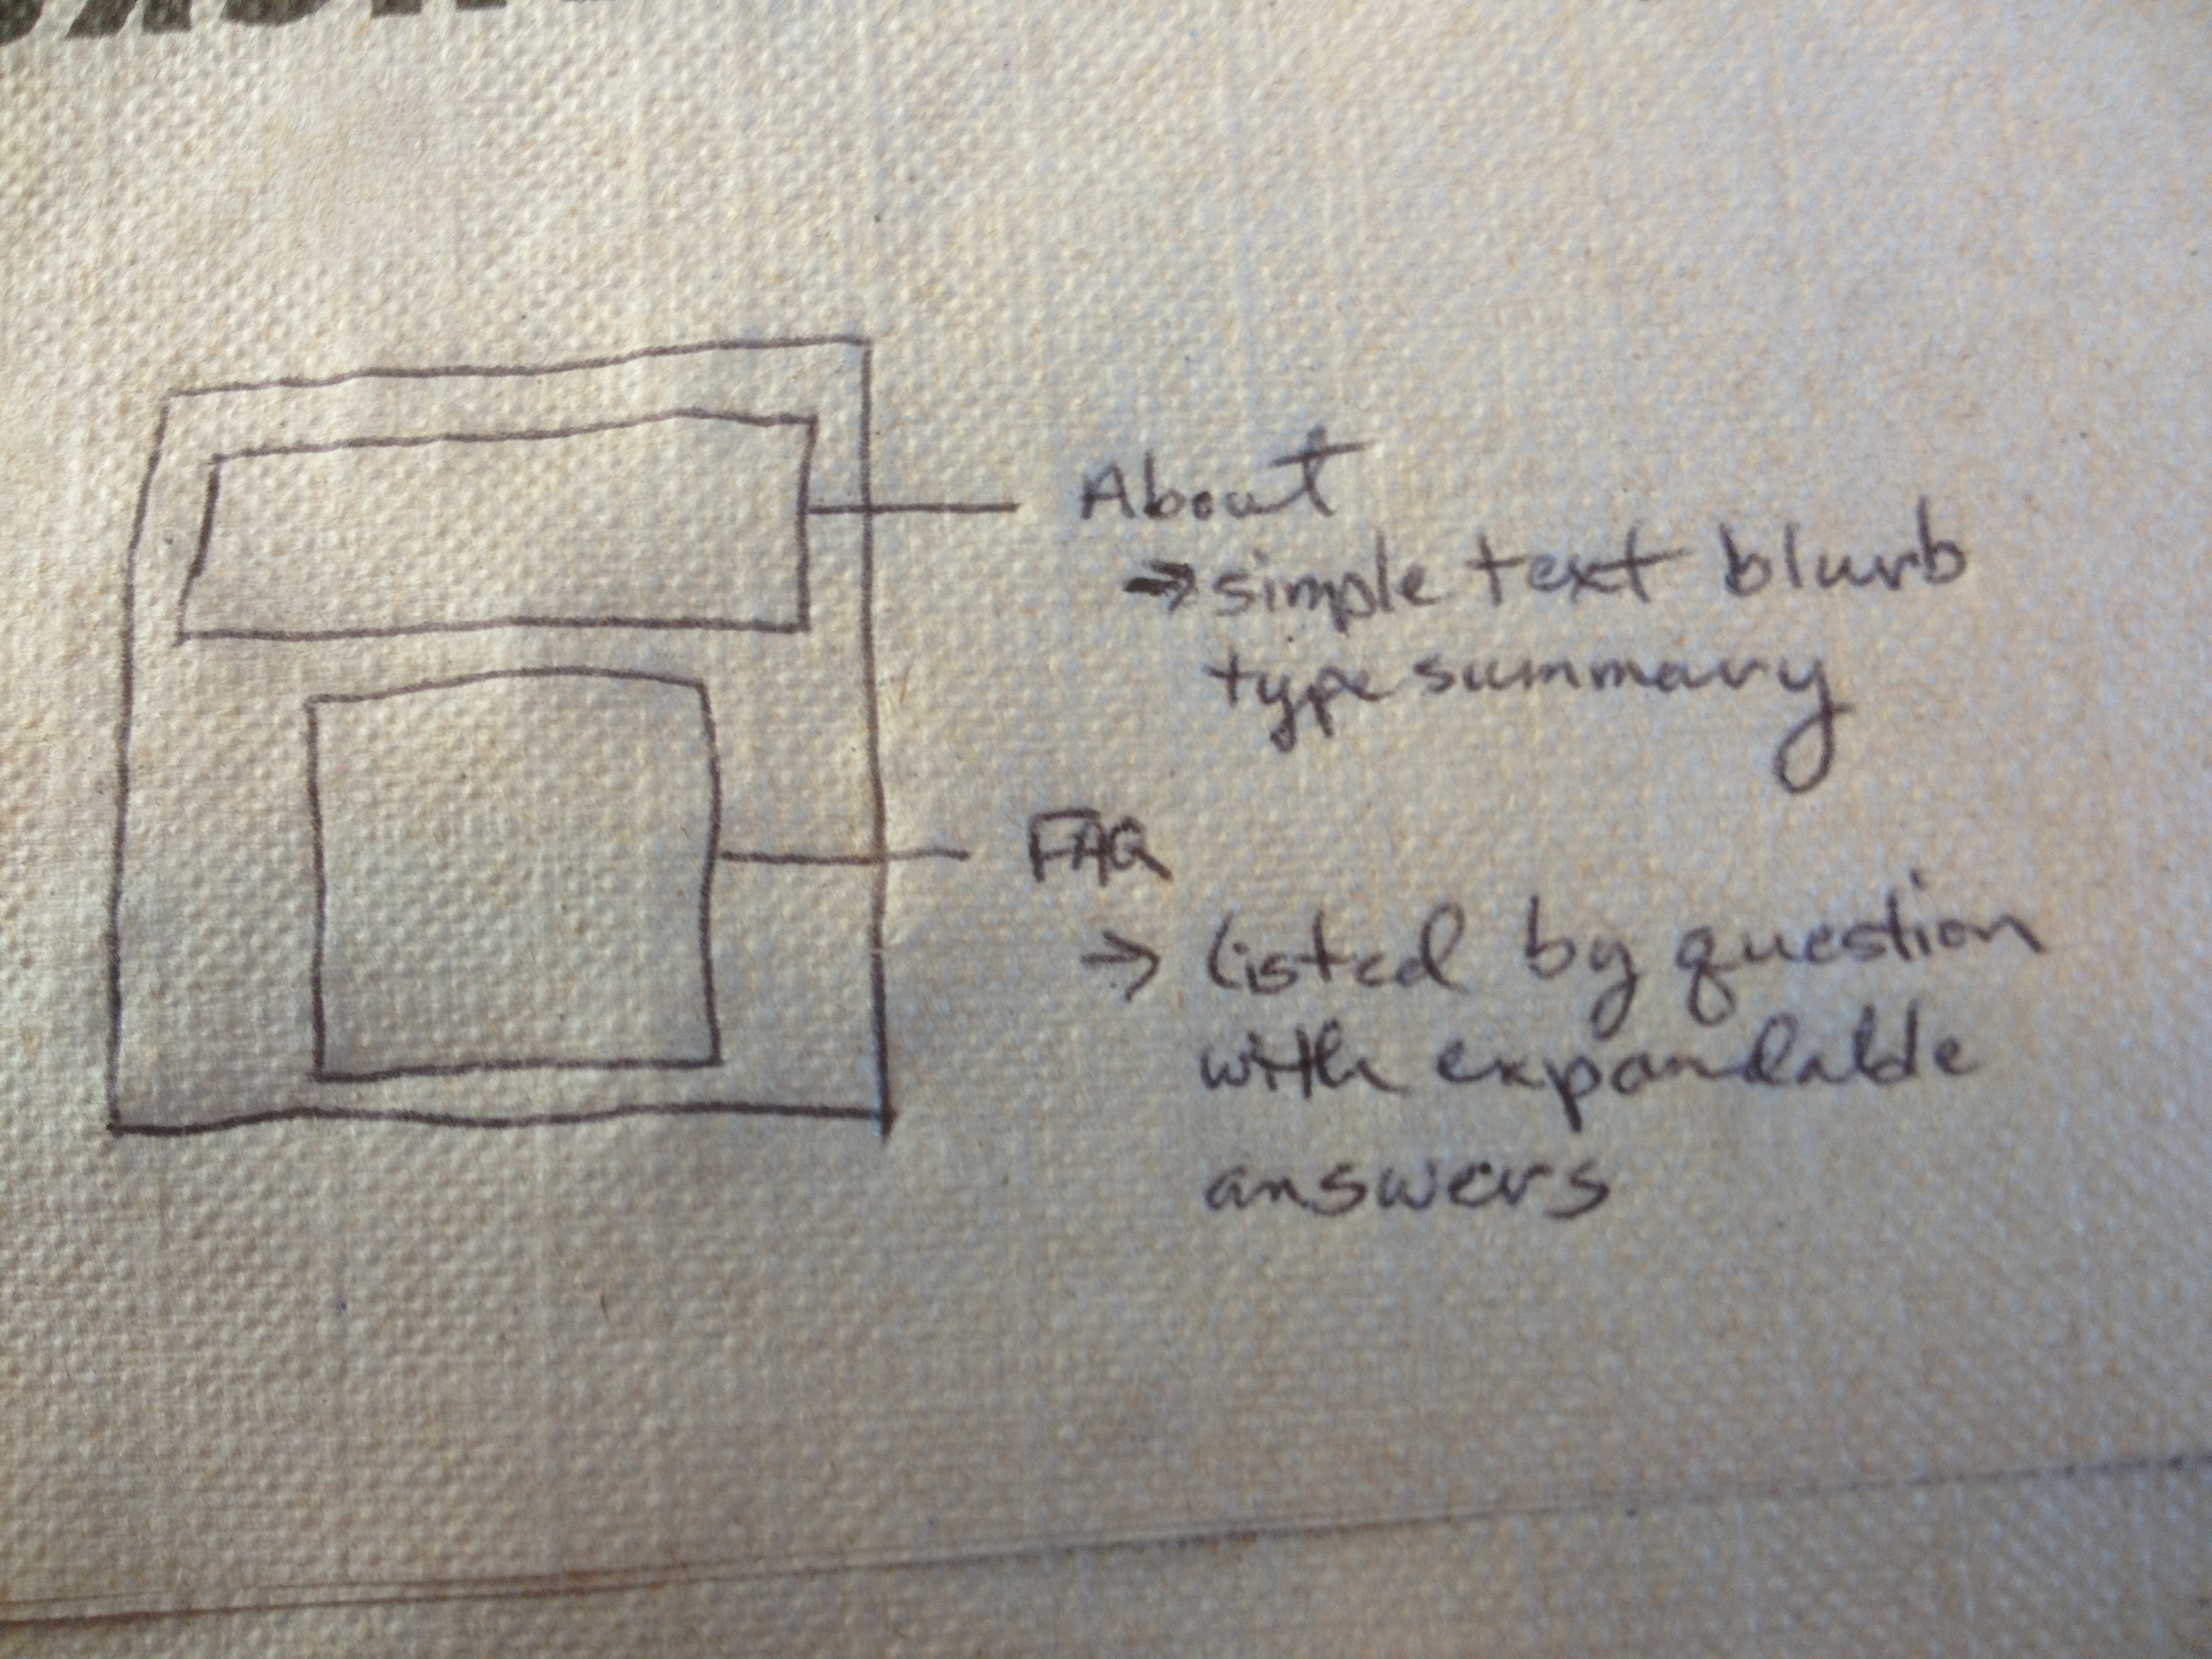 About
→ simple text blurb
type summary
FAQ
→ listed by question
with expandable
answers